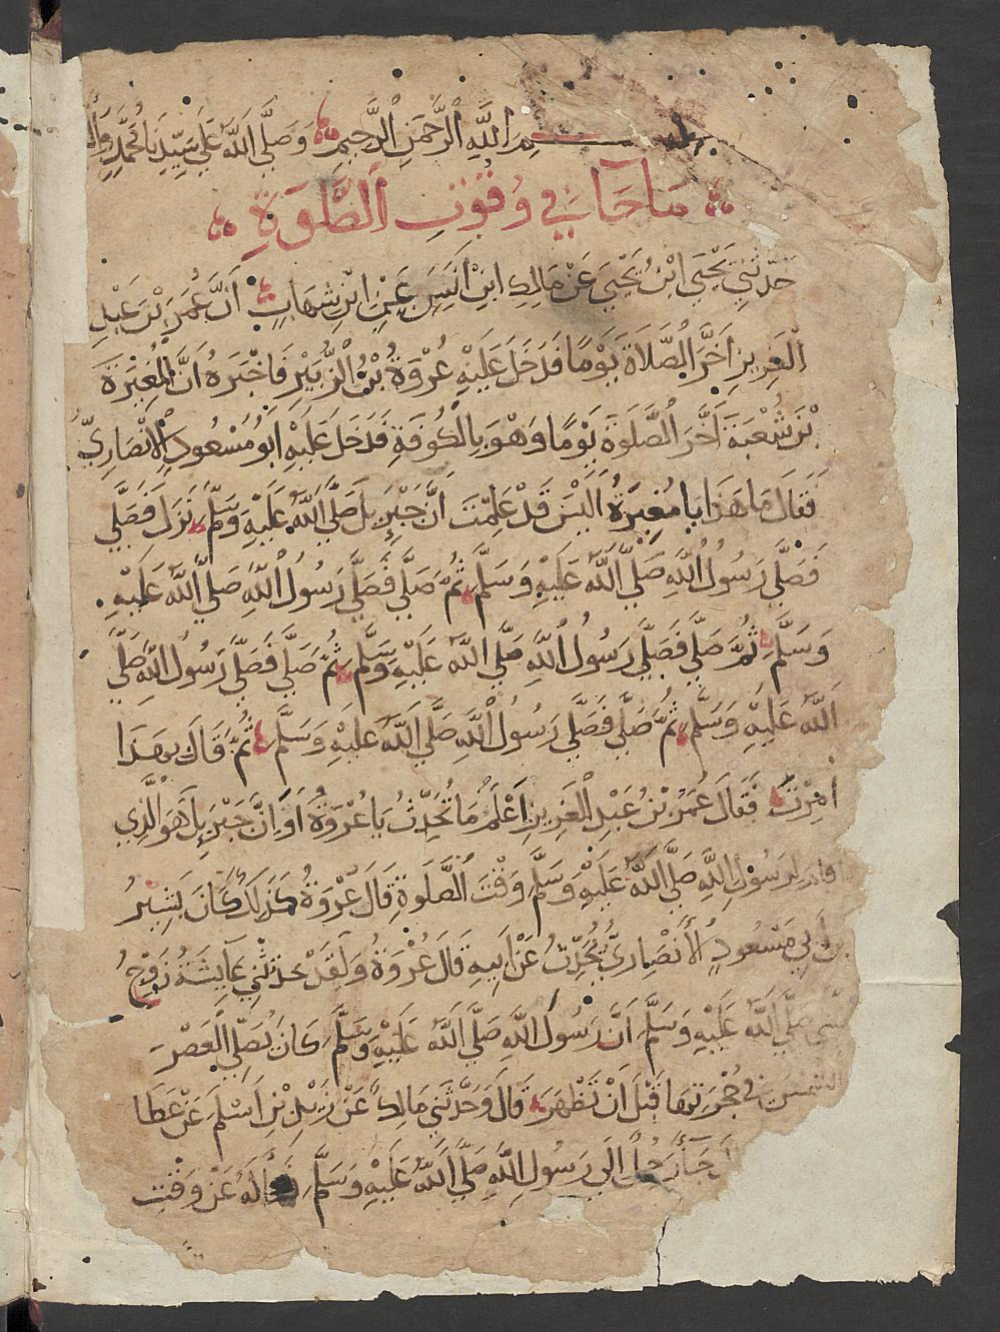 بسم الله الرحمن الرحيم وصلى الله على سيدنا محمد وآله
ما جاء في وقوت الصلوة
حدثني يحيى ابن يحيى عن مالك ابن أنس عن ابن شهاب أن عمر بن عبد
العزيز أخر الصلاة يوما فدخل عليه عروة بن الزبير فأخبره أن المغيرة
بن شعبة أخر الصلوة يوما وهو بالكوفة فدخل عليه أبو مسعود الأنصاري
فقال ما هذا يا مغيرة أليس قد علمت أن جبريل صلى الله عليه وسلم نزل فصلى
فصلى رسول الله صلى الله عليه وسلم ثم صلى فصلى رسول الله صلى الله عليه
وسلم ثم صلى فصلى رسول الله صلى الله عليه وسلم ثم صلى فصلى رسول الله صلى
الله عليه وسلم ثم صلى فصلى رسول الله صلى الله عليه وسلم ثم قال بهذا
أمرت فقال عمر بن عبد العزيز اعلم ما تحدث يا عروة أو إن جبريل هو الذي
أقام لرسول الله صلى الله عليه وسلم وقت الصلوة قال عروة كذلك كان بشير
بن أبي مسعود الأنصاري يحدث عن أبيه قال عروة ولقد حدثتني عايشة زوج
النبي صلى الله عليه وسلم أن رسول الله صلى الله عليه وسلم كان يصلي العصر
والشمس في حجرتها قبل أن تظهر قال وحدثني مالك عن زيد بن أسلم عن عطا
جاء رجل إلى رسول الله صلى الله عليه وسلم فسأله عن وقت